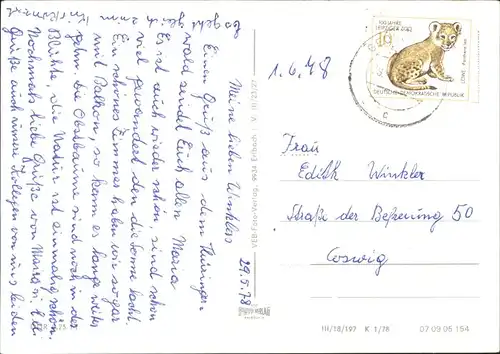 29.5.78
Meine lieben Winklers
Einen Gruß aus dem Thüringer
wald sendet Euch allen Maria
Es ist auch wieder schön, sind schon
viel gewandert denn die Sonne lacht
Ein schönes Zimmer haben wir sogar
mit Balkon, so kann es lange weiter
gehn. die Obstbäume sind noch in der
Blüte, die Natur ist einmalig schön.
Nochmals liebe Grüße von
Grüße auch unsere Kollegen von uns beiden
1.6.48
100 JAHRE
LEIPZIGER ZOO
10
LÖWE Panthera leo
DEUTSCHE DEMOKRATISCHE REPUBLIK
Frau
Edith Winkler
Straße der Befreiung 50
Coswig
III/18/197 K 1/78
07 09 06 154